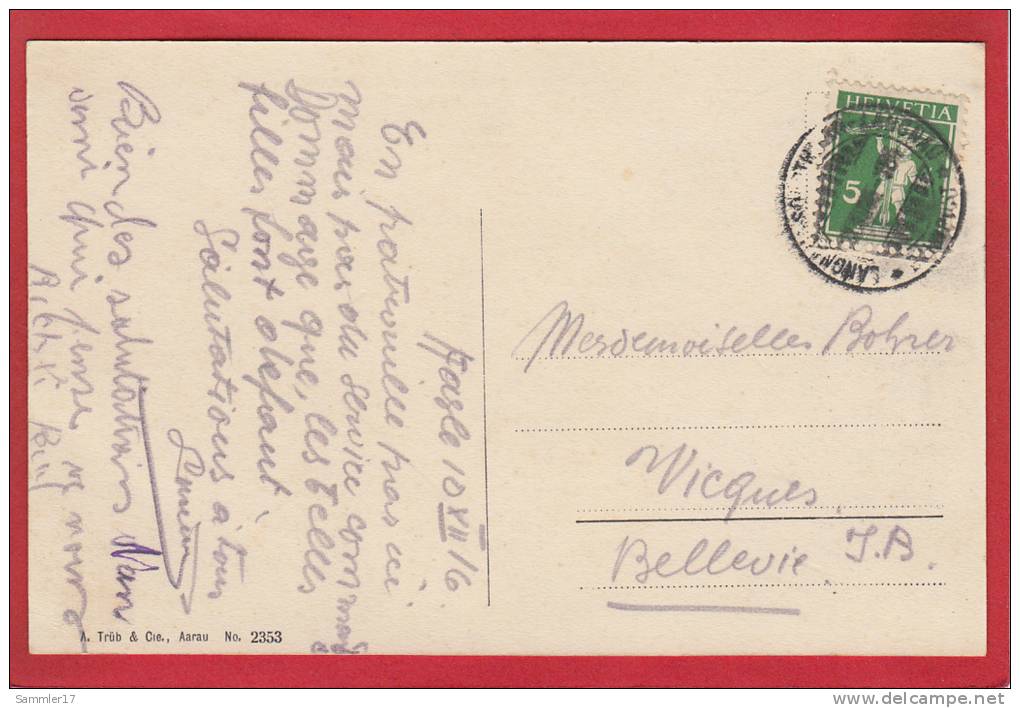 Hasle 10 XII 16
En patrouille pas ici
mais pas du service commandé
Dommage que, les belles
filles font défaut
Salutations à tous
Lucien
Bien des salutations d'un
ami qui pense à vous
HELVETIA
5
Mesdemoiselles Bohrer
Vicques
J.B.
Bellevie
A. Trüb & Cie., Aarau No. 2353
Sammler17
www.delcampe.net